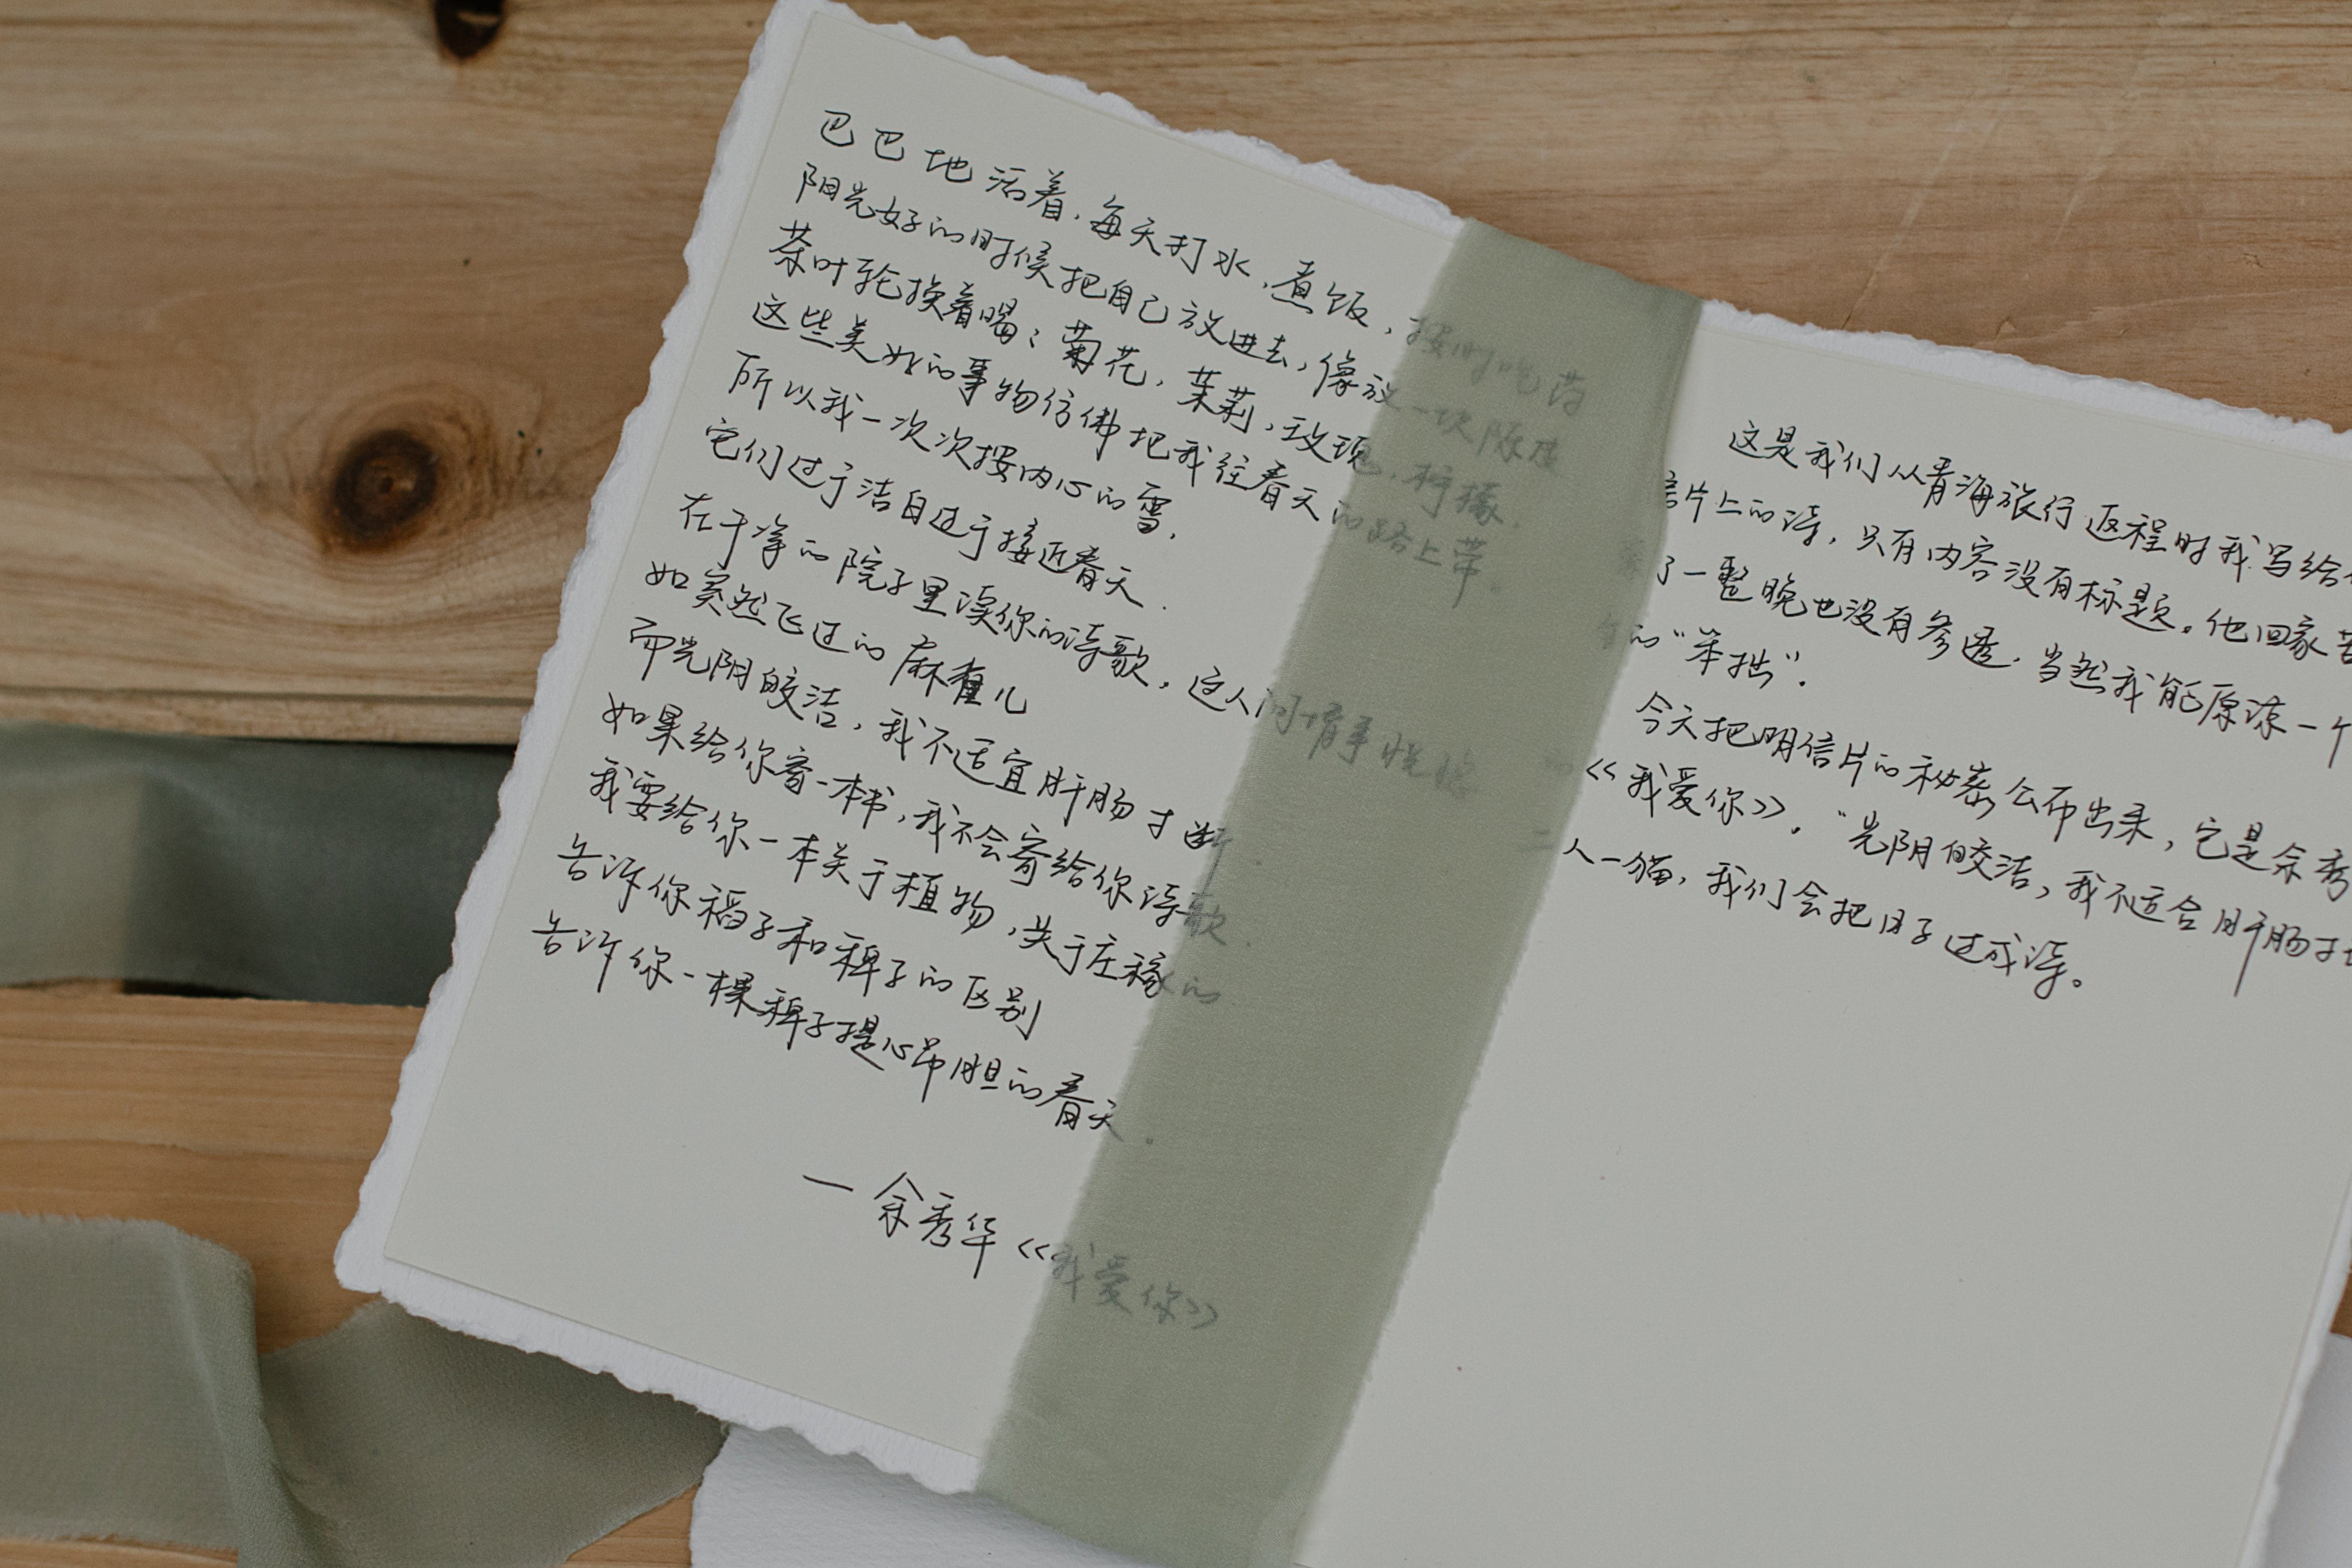 巴巴地活着,每天打水,煮饭,按时吃药
阳光好的时候把自己放进去,像放一块陈皮
茶叶轮换着喝:菊花,茉莉,玫瑰,柠檬.
这些美好的事物仿佛把我往春天的路上带。
所以我一次次按内心的雪,
它们过于洁白过于接近春天.
在干净的院子里读你的诗歌,这人间情事恍惚
如突然飞过的麻雀儿
而光阴皎洁,我不适宜肝肠寸断.
如果给你寄一本书,我不会寄给你诗歌.
我要给你一本关于植物,关于庄稼的
告诉你稻子和稗子的区别
告诉你一棵稗子提心吊胆的春天.
— 余秀华《我爱你》
这是我们从青海旅行返程时我写给
信片上的诗,只有内容没有标题。他回家
了一整晚也没有参透.当然我能原谅一个
的“笨拙”.
今天把明信片的秘密公布出来,它是余秀
的《我爱你》.“光阴皎洁,我不适合肝肠寸
二人一猫,我们会把日子过成诗。